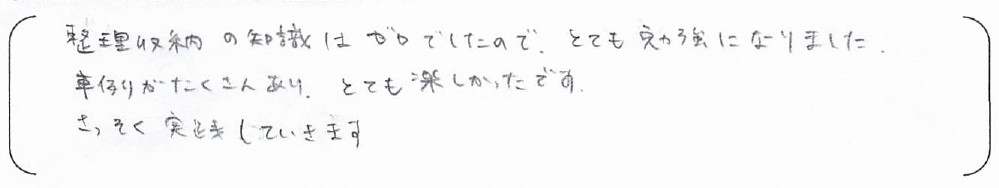 整理収納の知識はゼロでしたので、とても勉強になりました.
事例がたくさんあり、とても楽しかったです.
さっそく実践していきます